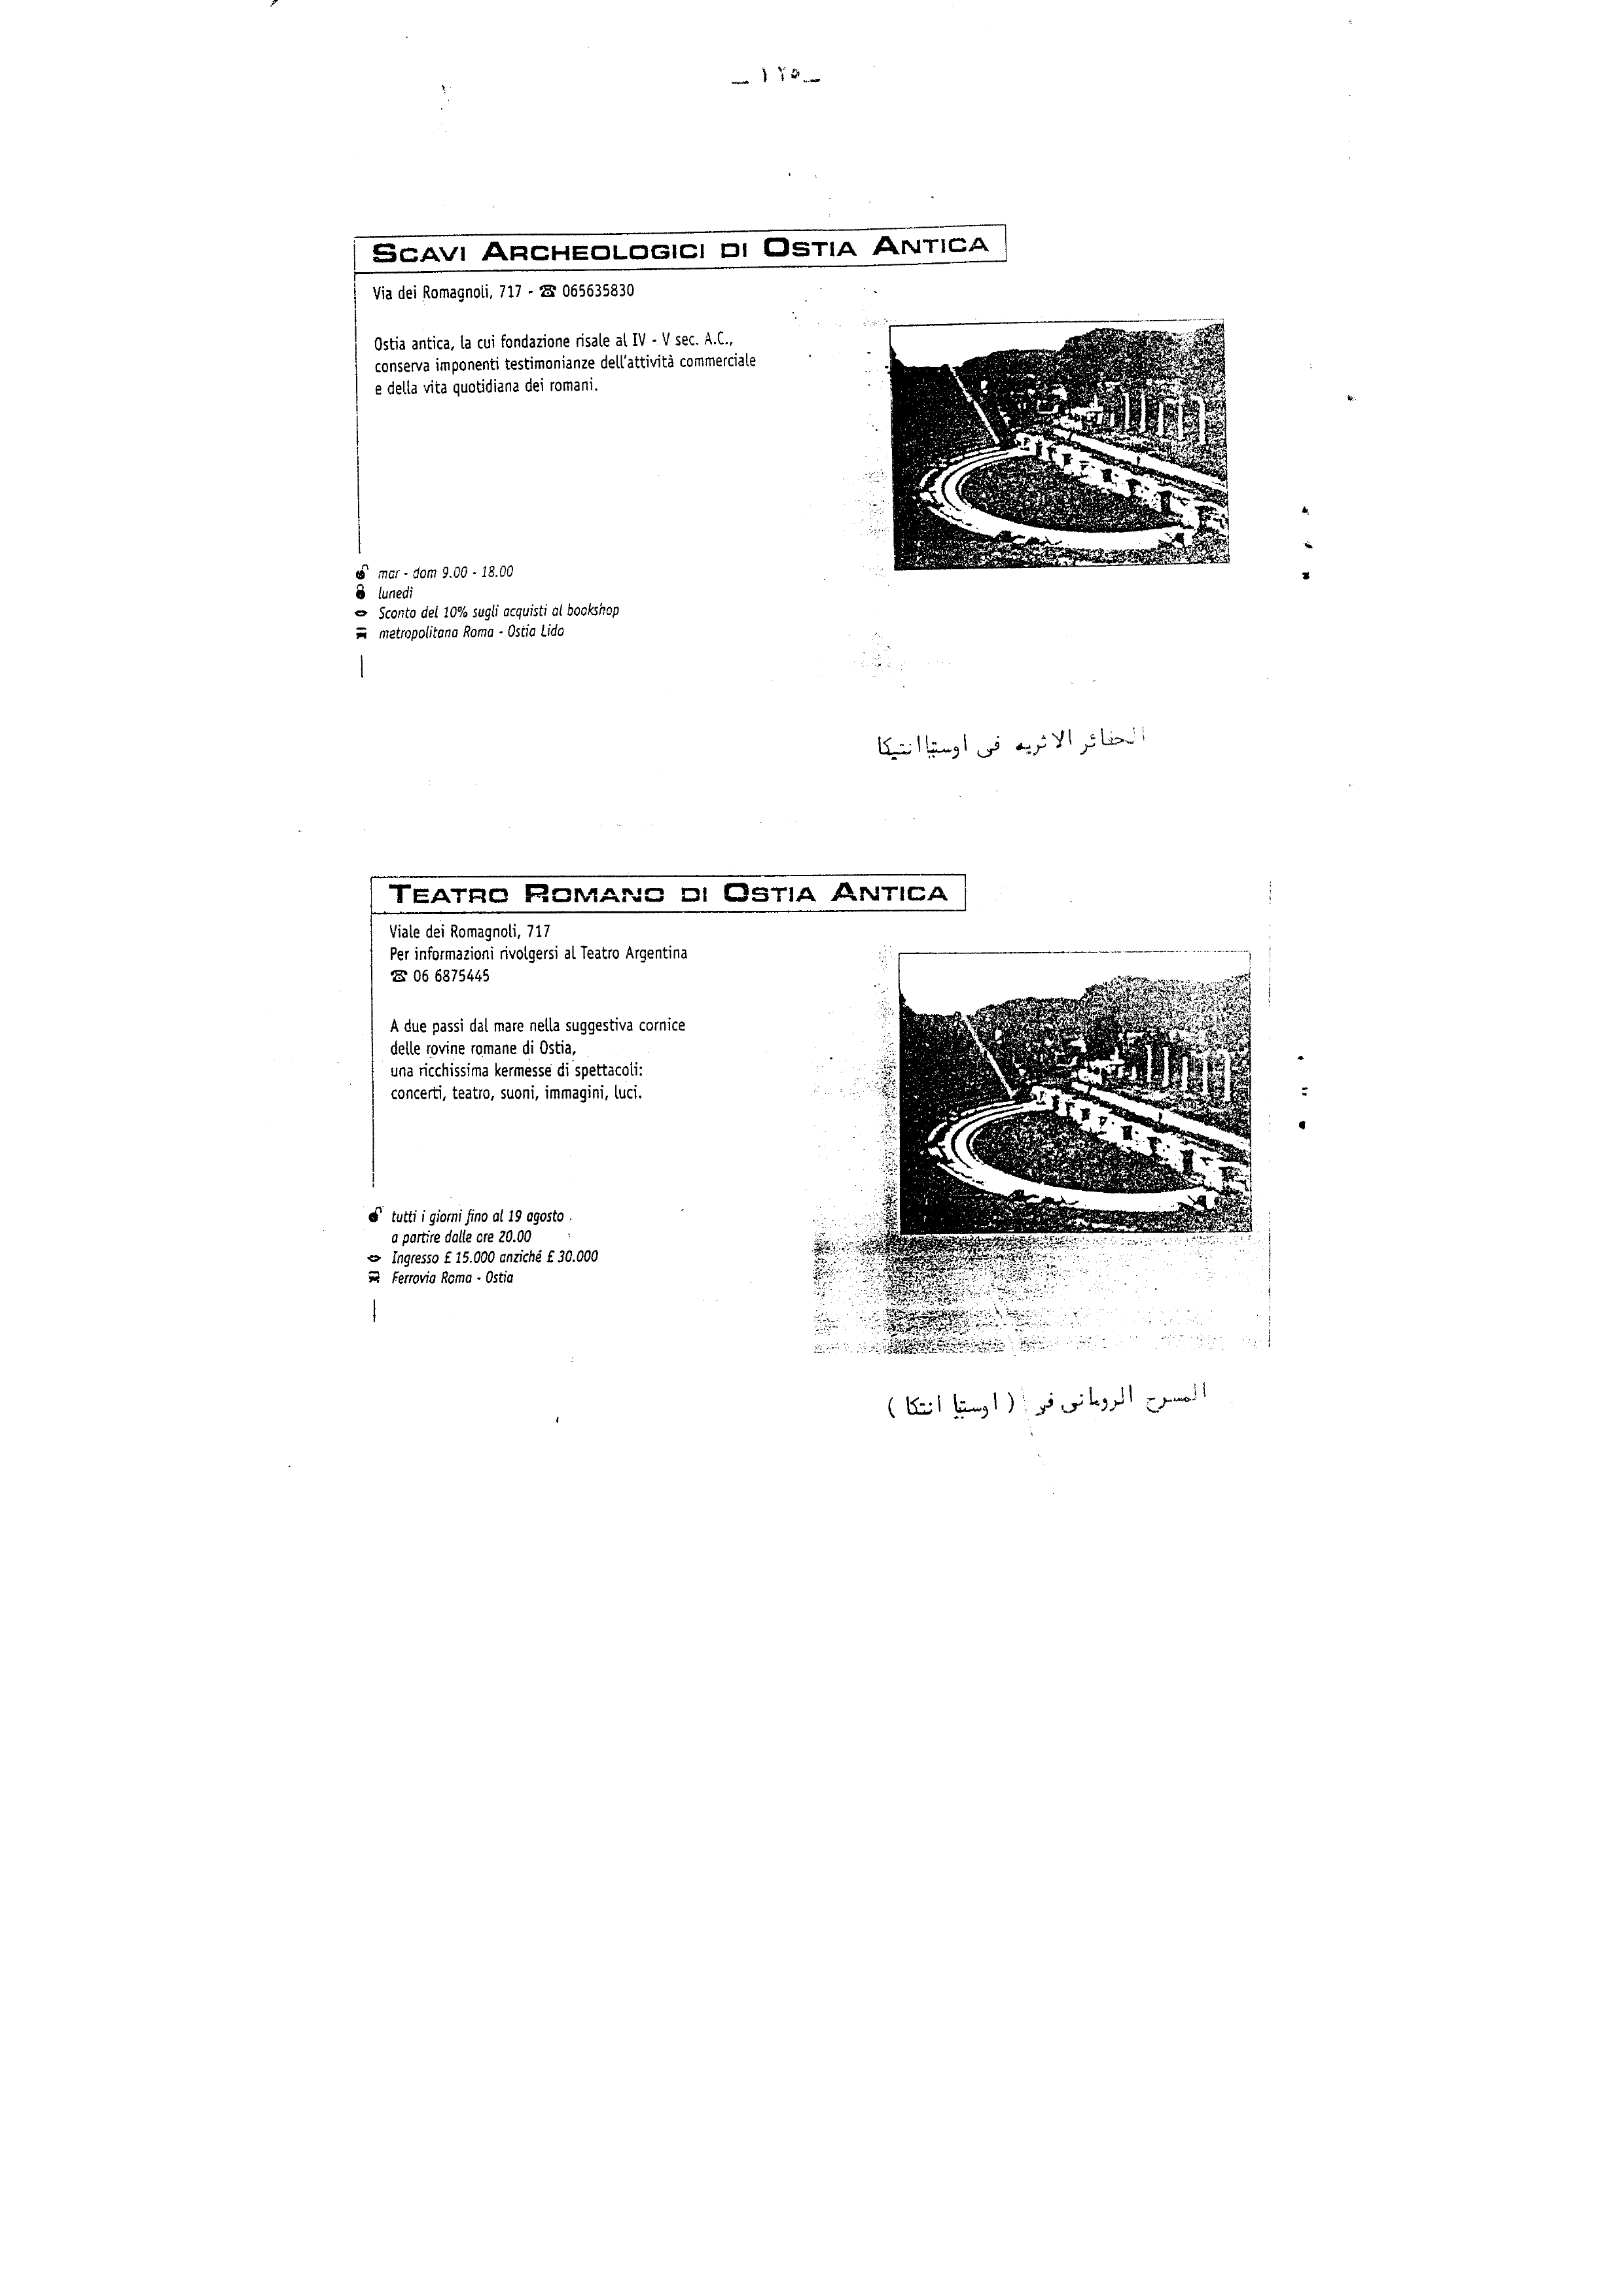 _ ١٢٥ _
SCAVI ARCHEOLOGICI DI OSTIA ANTICA
Via dei Romagnoli, 717 - ☎ 065635830
Ostia antica, la cui fondazione risale al IV - V sec. A.C.,
conserva imponenti testimonianze dell'attività commerciale
e della vita quotidiana dei romani.
mar - dom 9.00 - 18.00
lunedì
Sconto del 10% sugli acquisti al bookshop
metropolitana Roma - Ostia Lido
الحفائر الاثريه فى اوستيا انتيكا
TEATRO ROMANO DI OSTIA ANTICA
Viale dei Romagnoli, 717
Per informazioni rivolgersi al Teatro Argentina
☎ 06 6875445
A due passi dal mare nella suggestiva cornice
delle rovine romane di Ostia,
una ricchissima kermesse di spettacoli:
concerti, teatro, suoni, immagini, luci.
tutti i giorni fino al 19 agosto
a partire dalle ore 20.00
Ingresso £ 15.000 anziché £ 30.000
Ferrovia Roma - Ostia
المسرح الرومانى فى ( اوستيا انتكا )